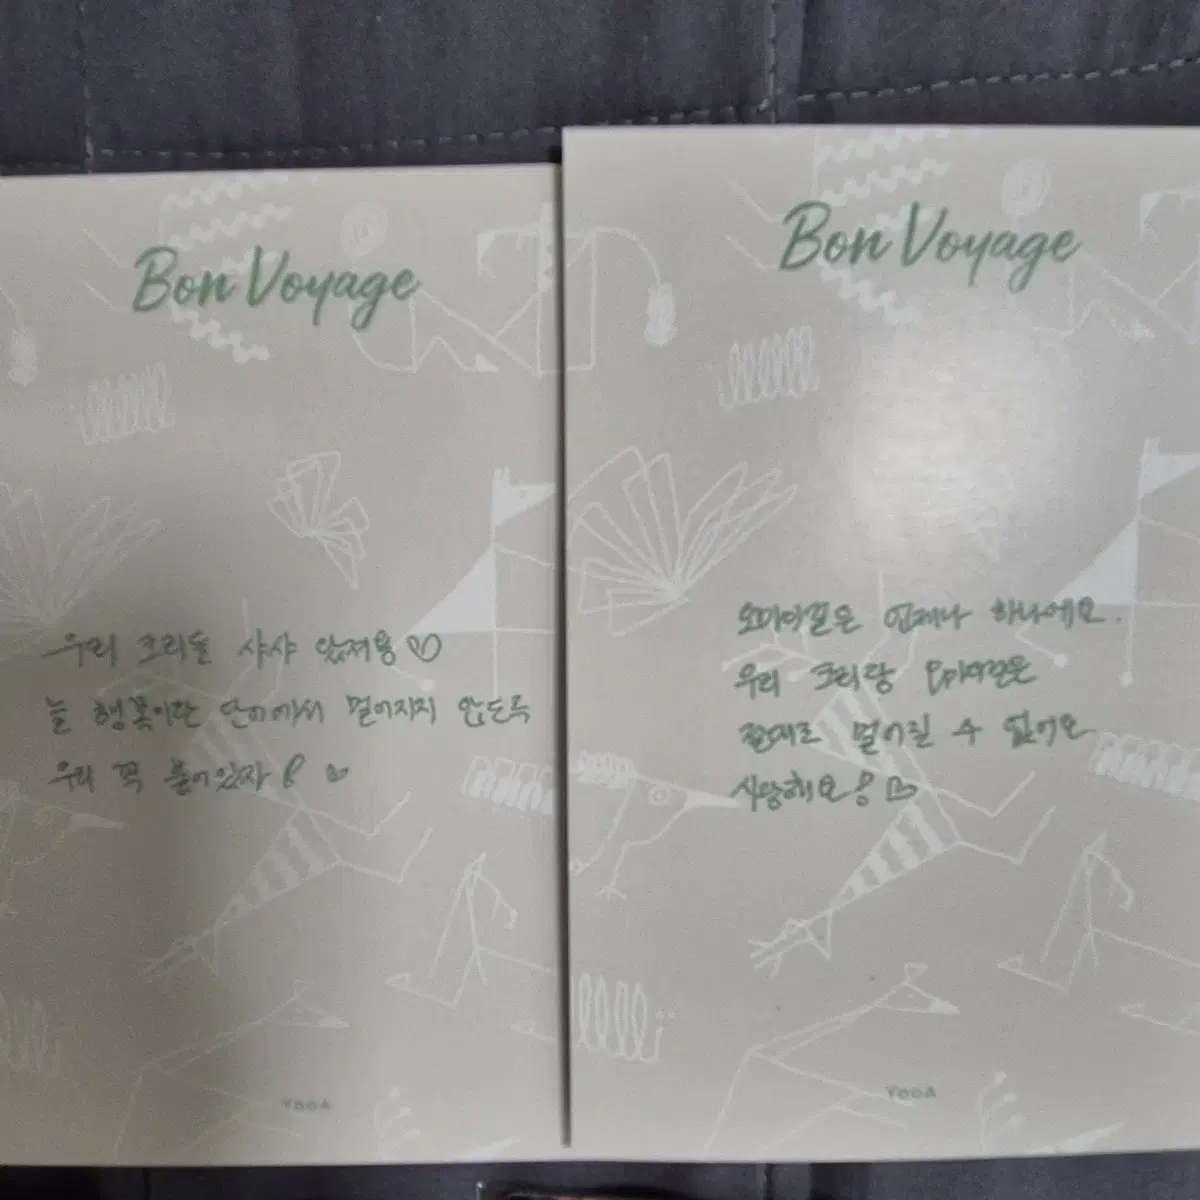 Bon Voyage
우리 크리들 샤샤 있져용♡
늘 행복이란 단어에서 멀어지지 않도록
우리 꼭 붙어있자! ♡
YOOA
Bon Voyage
오마이걸은 언제나 하나에요.
우리 크리랑 오마이걸은
절대로 멀어질 수 없어요
사랑해요! ♡
YOOA